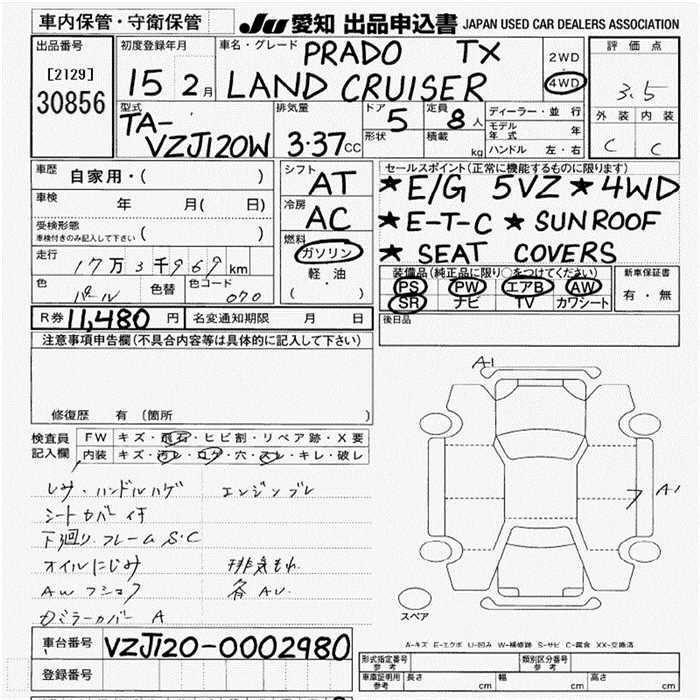 車内保管・守衛保管
JU 愛知 出品申込書 JAPAN USED CAR DEALERS ASSOCIATION
出品番号 初度登録年月 車名・グレード PRADO TX 2WD 評価点
[2129] 15 2月 LAND CRUISER 4WD 3.5
30856
型式 排気量 ドア 5 定員 8人 ディーラー・並行 外装 内装
TA- モデル年式 年
VZJ120W 3.37cc 形状 積載 kg ハンドル 左・右 C C
車歴 自家用・( ) シフト AT セールスポイント(正常に機能するものに限ります)
★E/G 5VZ ★4WD
車検 年 月( 日) 冷房 AC
★E-T-C ★SUNROOF
受検形態
車検付きのみ記入して下さい ( ) 燃料
★ SEAT COVERS
走行 17万3千969km ガソリン
軽・油
( ・ )
装備品(純正品に限り○をつけてください) 新車保証書
色 パール 色替 色コード 070 PS PW エアB AW 有・無
SR ナビ TV カワシート
R券 11,480円 名変通知期限 月 日 後日品
注意事項申告欄(不具合内容等は具体的に記入して下さい)
修復歴 有 (箇所 )
A1
検査員 FW キズ・飛石・ヒビ割・リペア跡・X要
記入欄 内装 キズ・汚レ・コゲ・穴・スレ・キレ・破レ
A1
レザ・ハンドルハゲ エンジンブレ
シートカバー付
下廻り.フレームS・C
オイルにじみ 排気もれ
各AU.
A
スペア
A-キズ E-エクボ U-凹み W-補修跡 S-サビ C-腐食 XX-交換済
車台番号 VZJ120-0002980
登録番号
形式指定番号 参考 類別区分番号 参考
車庫証明用 参考 長さ cm 幅 cm 高さ cm